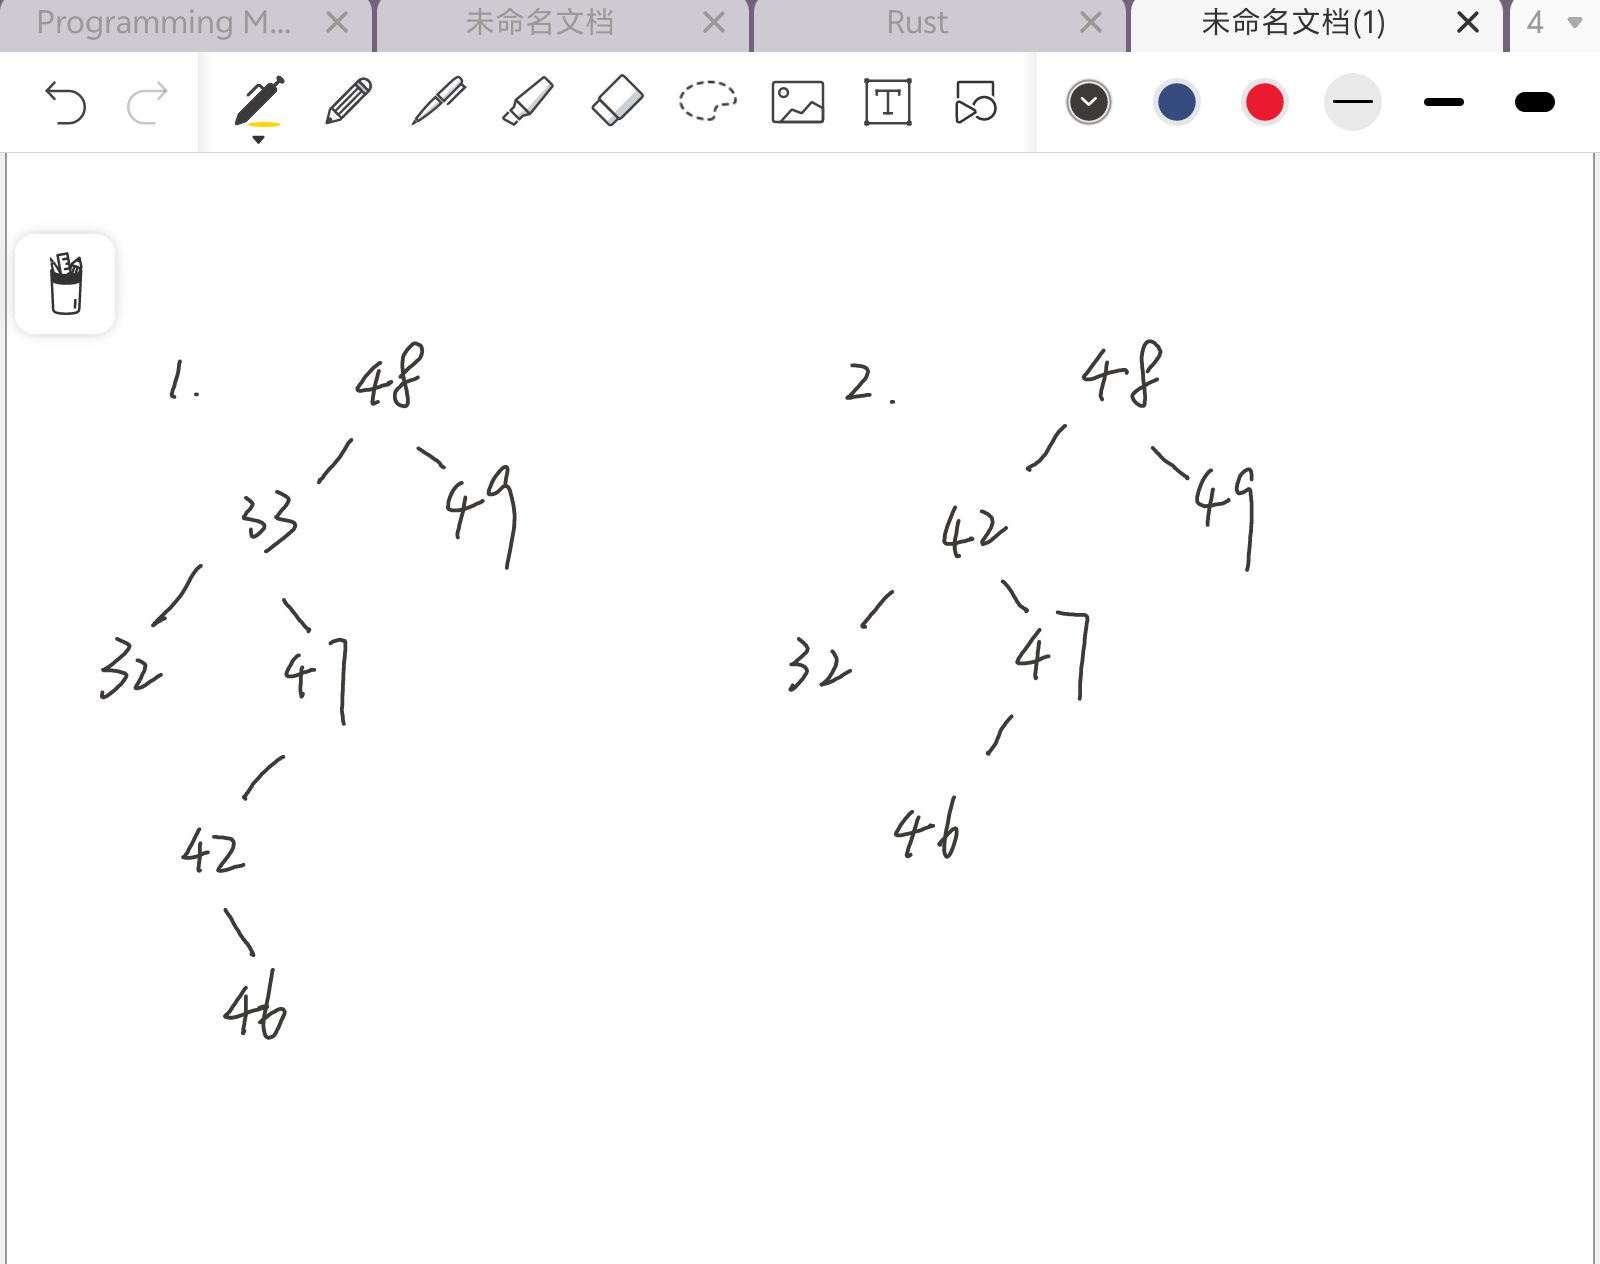 Programming M... 未命名文档 Rust 未命名文档(1) 4
T
1. 48
33 49
32 47
42
46
2. 48
42 49
32 47
46